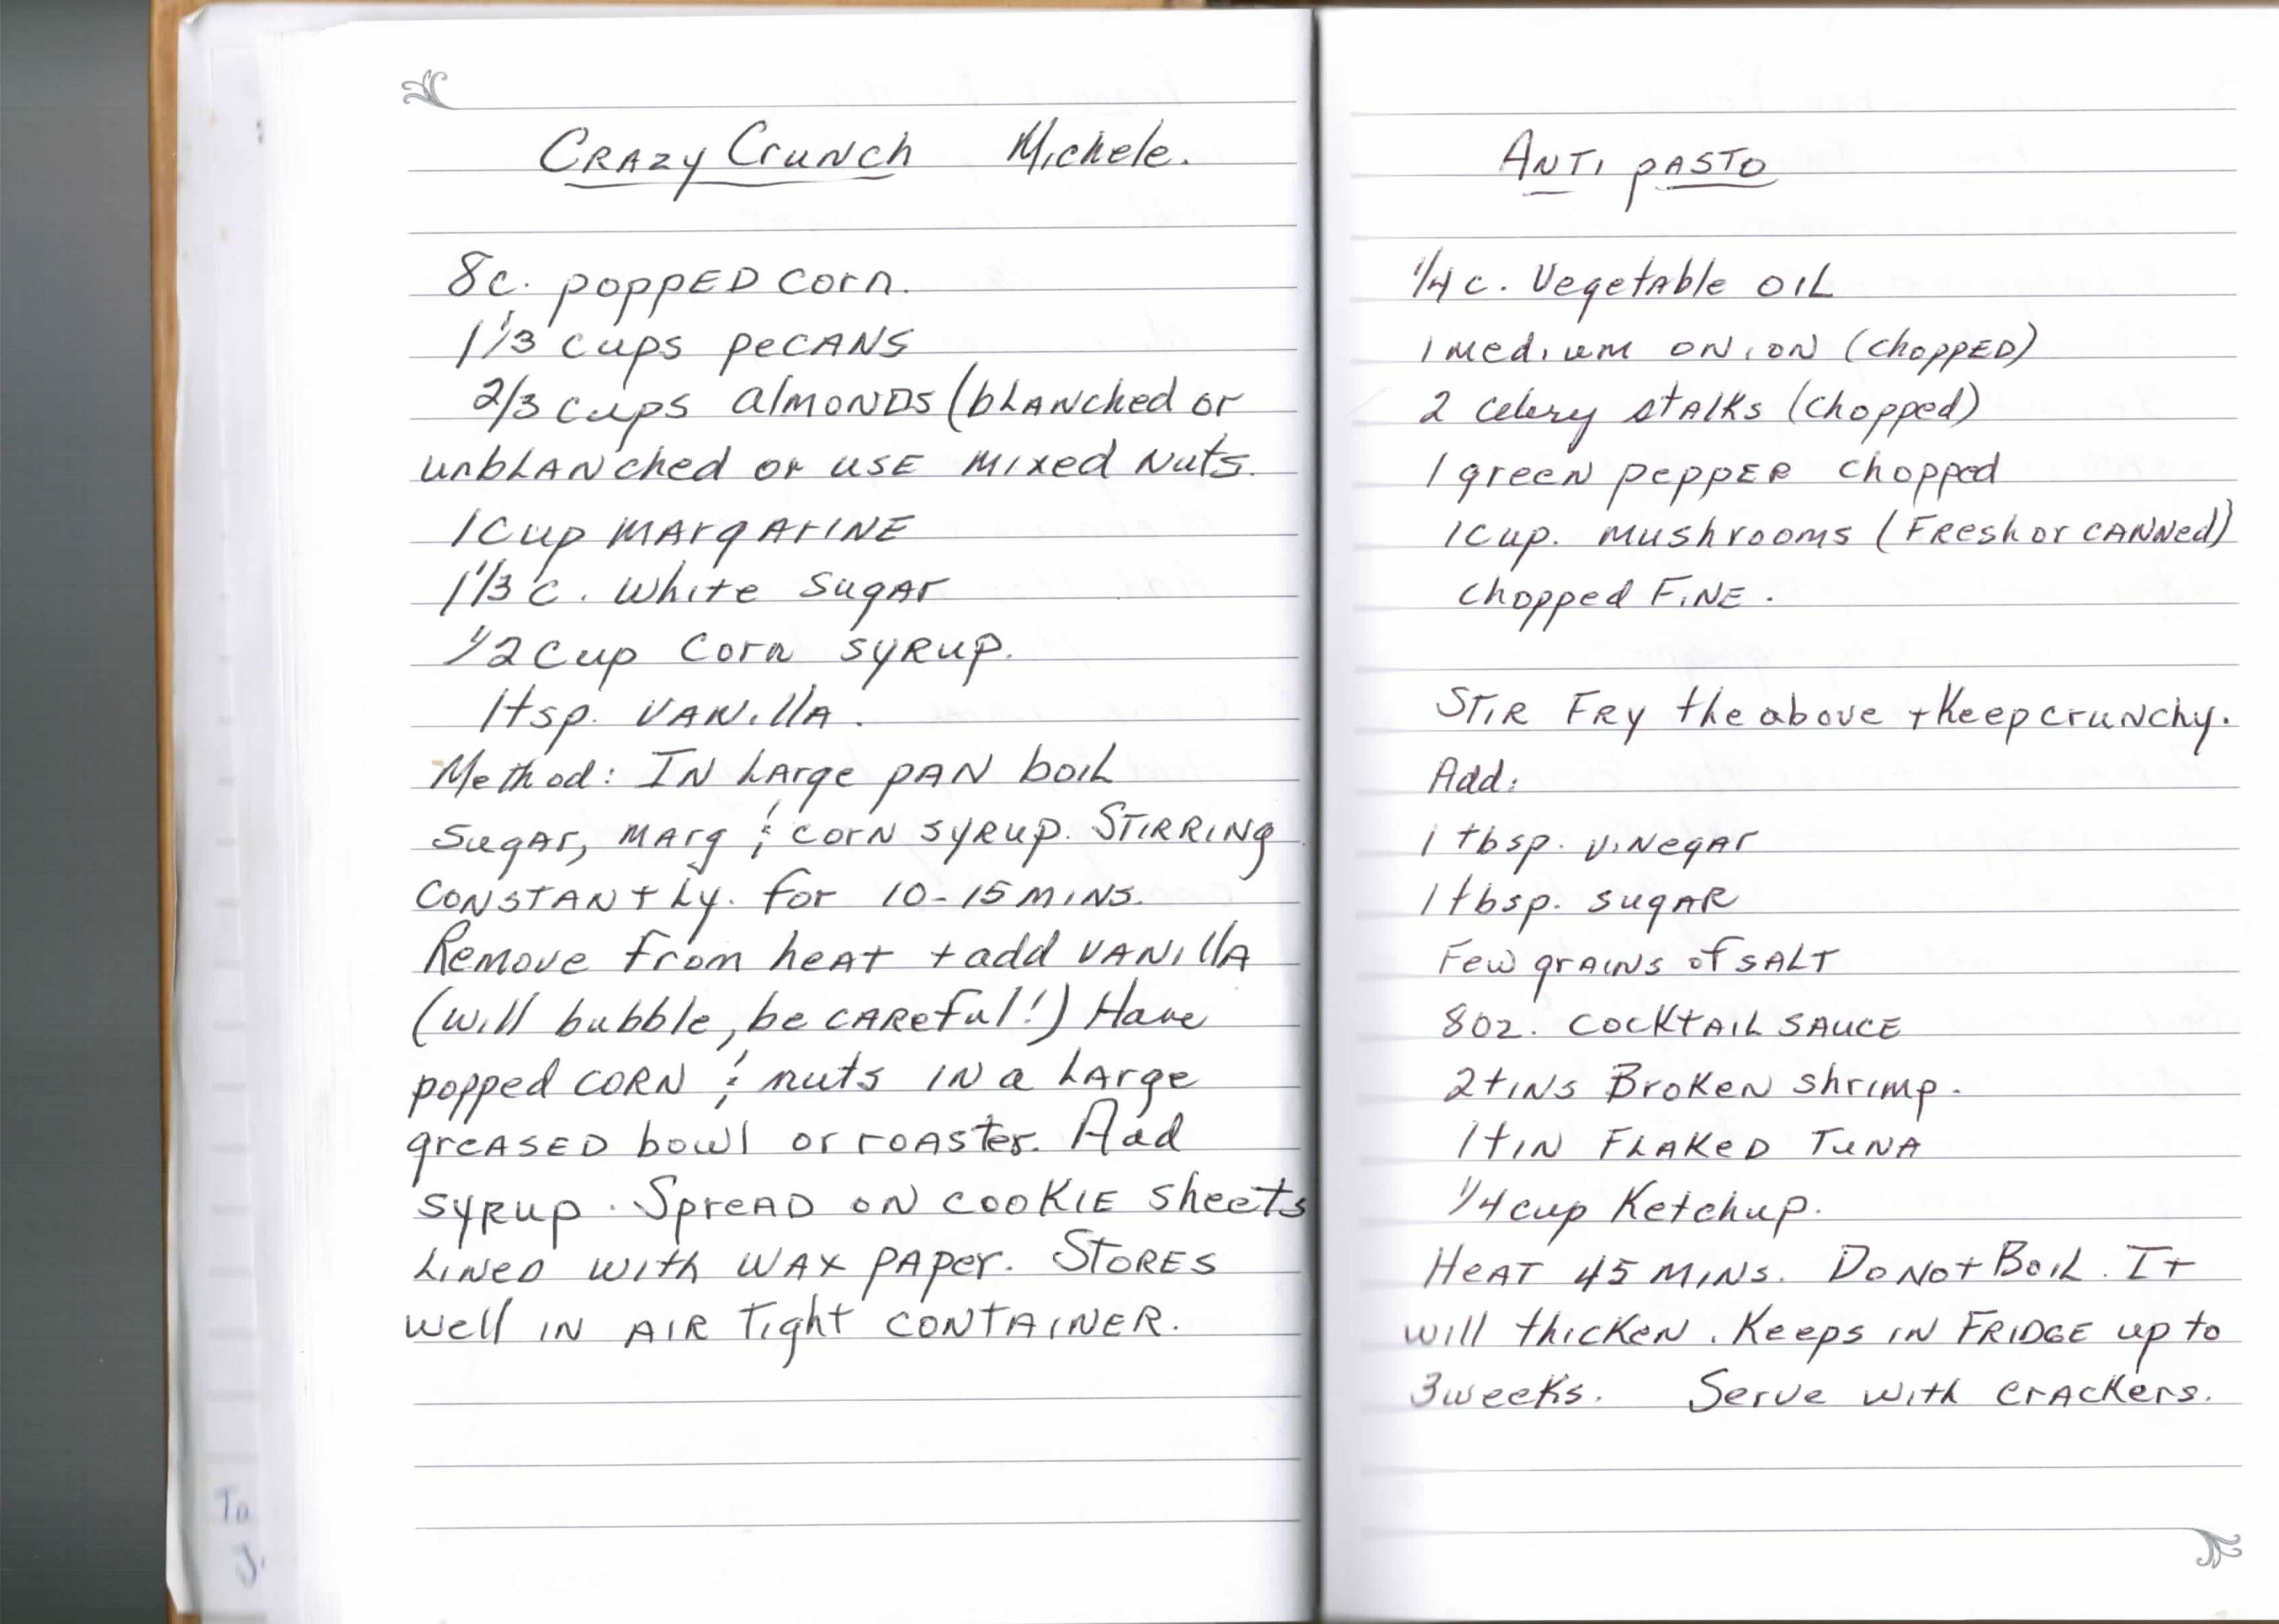 Crazy Crunch Michele.
8c. popped corn.
1 1/3 cups pecans
2/3 cups almonds (blanched or
unblanched or use mixed nuts.
1 cup margarine
1 1/3 c. white sugar
1/2 cup corn syrup.
1 tsp. vanilla.
Method: In large pan boil
sugar, marg & corn syrup. Stirring
constantly. for 10-15 mins.
Remove from heat + add vanilla
(will bubble, be careful!) Have
popped corn & nuts in a large
greased bowl or roaster. Add
syrup. Spread on cookie sheets
lined with wax paper. Stores
well in air tight container.
To
Anti pasto
1/4 c. Vegetable oil
1 medium onion (chopped)
2 celery stalks (chopped)
1 green pepper chopped
1 cup. mushrooms (Fresh or canned)
chopped Fine.
Stir Fry the above + Keep crunchy.
Add:
1 tbsp. vinegar
1 tbsp. sugar
Few grains of salt
8 oz. cocktail sauce
2 tins Broken shrimp.
1 tin Flaked Tuna
1/4 cup Ketchup.
Heat 45 mins. Do Not Boil. It
will thicken. Keeps in Fridge up to
3 weeks. Serve with crackers.